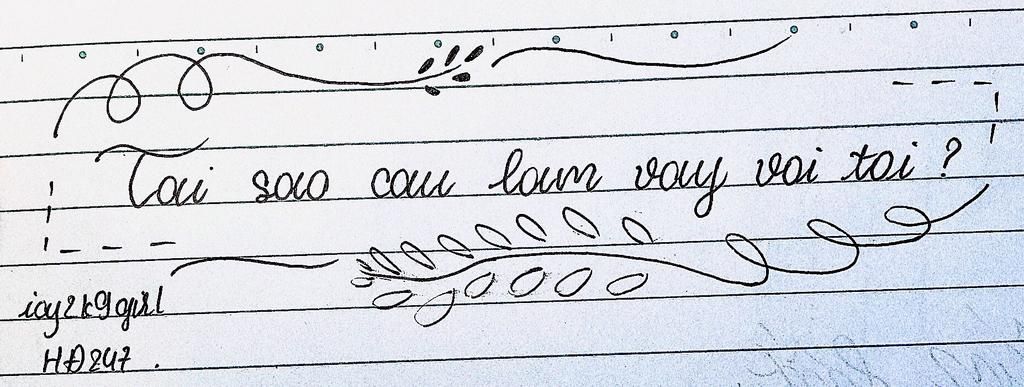 Tai sao cau lam vay voi toi ?
icy2k9girl
HĐ247 .